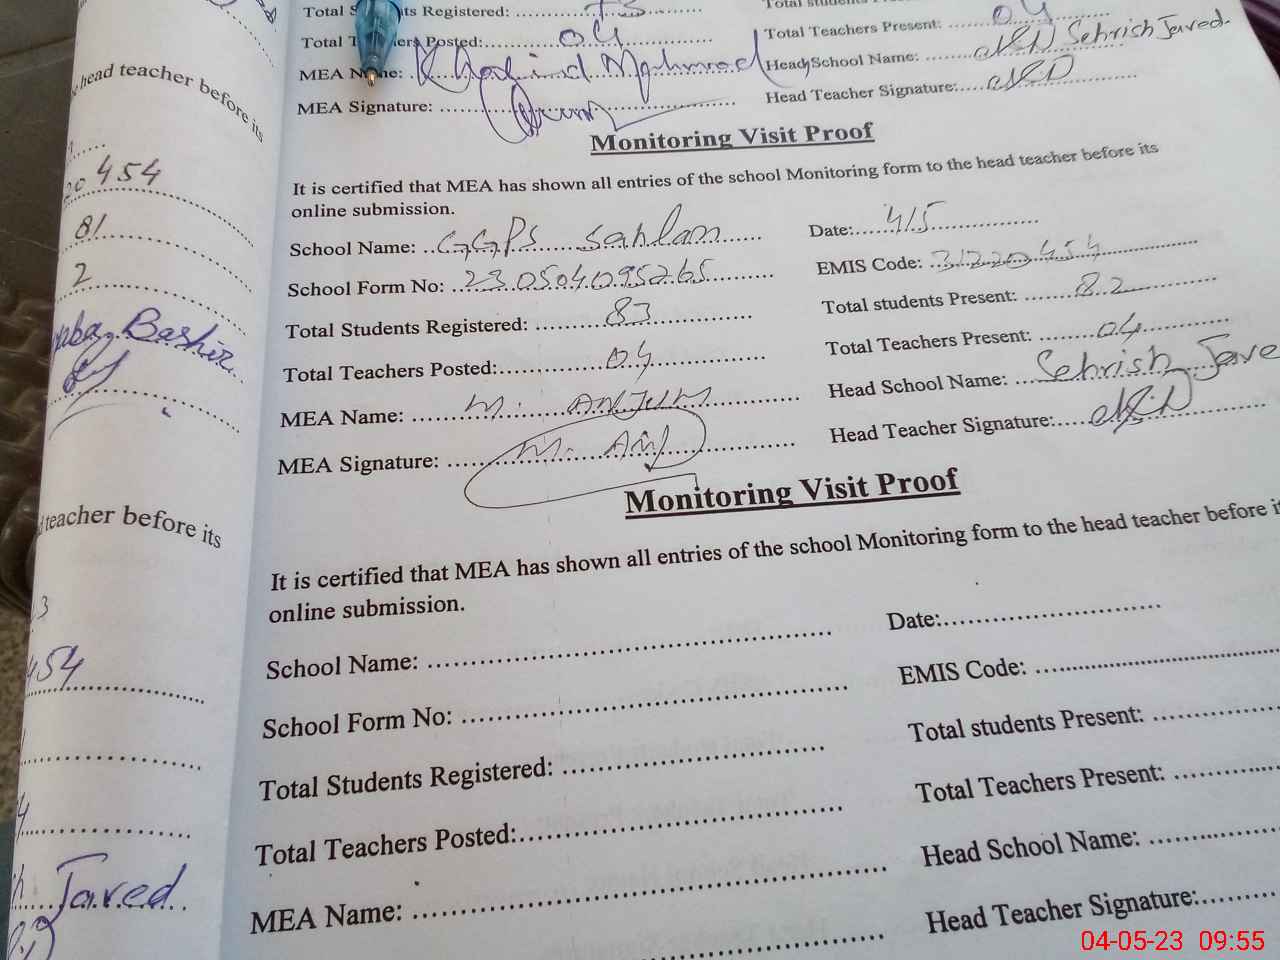 Total Students Registered: 73
Total Teachers Posted: 04 Total Teachers Present: 04
MEA Name: Khalid Mahmood Head School Name: Sehrish Javed
MEA Signature: Head Teacher Signature:
Monitoring Visit Proof
It is certified that MEA has shown all entries of the school Monitoring form to the head teacher before its
online submission.
School Name: GGPS Sahlan Date: 4/5
School Form No: 230504095265 EMIS Code: 31220454
Total Students Registered: 83 Total students Present: 82
Total Teachers Posted: 04 Total Teachers Present: 04
MEA Name: M. ANJUM Head School Name: Sehrish Jave
MEA Signature: Head Teacher Signature:
Monitoring Visit Proof
It is certified that MEA has shown all entries of the school Monitoring form to the head teacher before i
online submission.
School Name: Date:
School Form No: EMIS Code:
Total Students Registered: Total students Present:
Total Teachers Posted: Total Teachers Present:
MEA Name: Head School Name:
Head Teacher Signature:
head teacher before its
454
81
2
Bashir
teacher before its
3
454
Javed
04-05-23 09:55